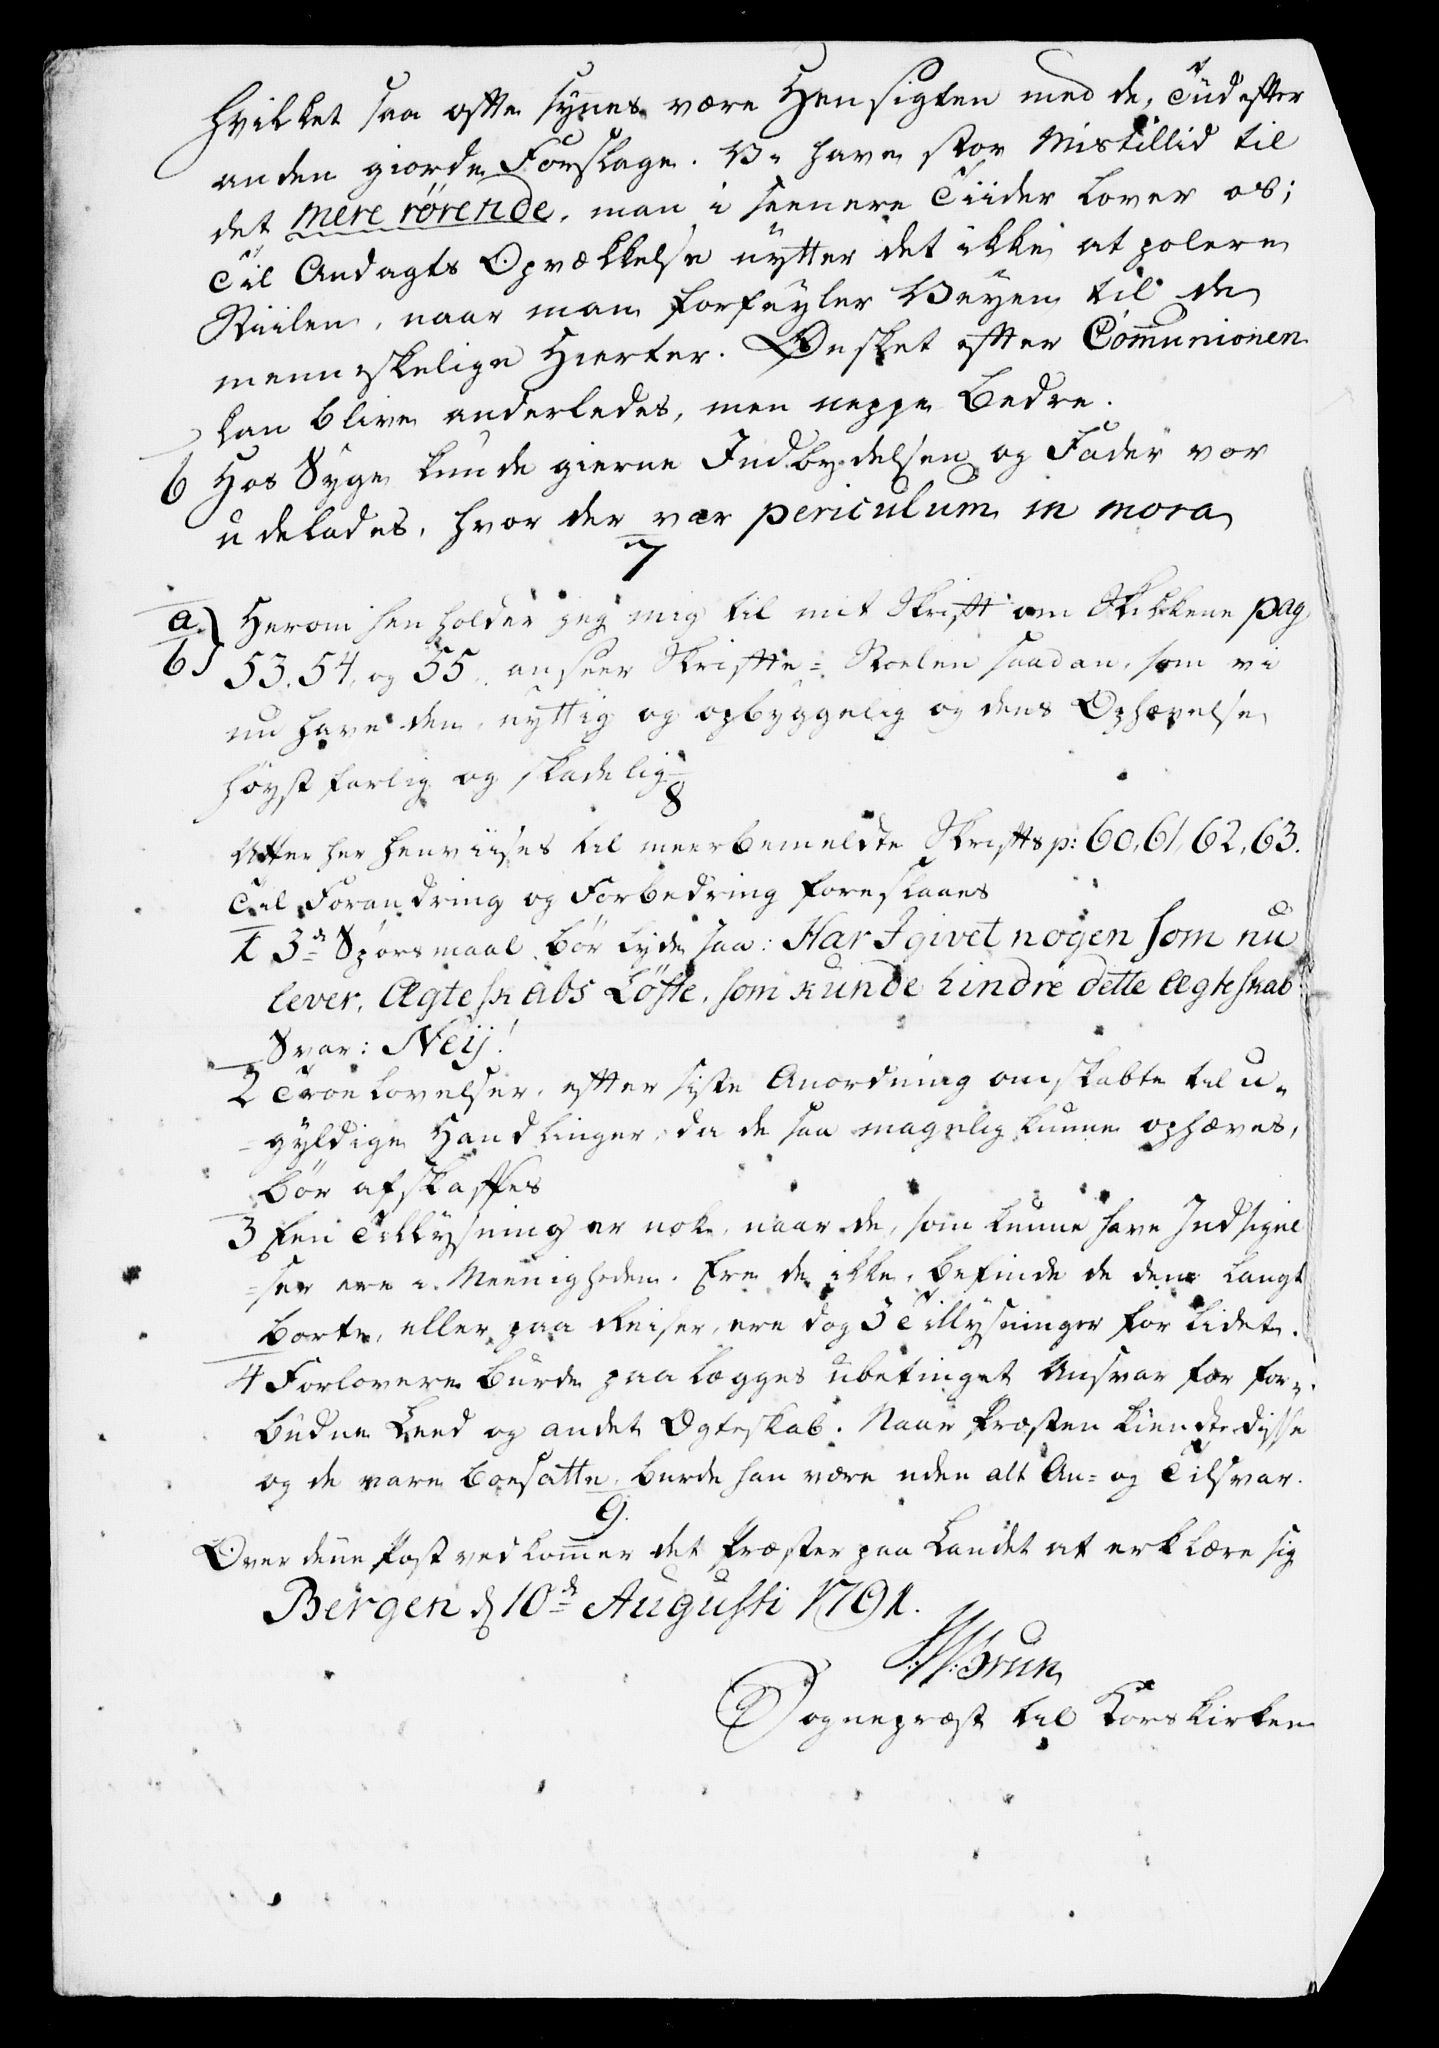 hvilket saa ofte synes være Hensigten med de, Tiid efter
anden giorde Forslage. Vi have stor Mistillid til
det mere rørende, man i seenere Tiider lover os;
Til Andagts Opvækkelse nytter det ikke at polere
Stiilen, naar man forfeyler Veyen til de
menneskelige Hierter. Ønsket efter Com̅unionen
kan blive anderledes, men neppe bedre.
b Hos Syge kunde gierne Indbydelsen og Fader vor
udelades, hvor der var periculum in mora
7
a) Herom henholder jeg mig til mit Skrift om Skikkene pag
b) 53, 54, og 55, anseer Skrifte-Stoelen saadan, som vi
nu have den, nyttig og opbyggelig og dens Ophævelse
høyst farlig og skadelig
8
Atter her henviises til meerbemeldte Skrifts p: 60, 61, 62, 63.
Til Forandring og Forbedring foreslaaes
1 3de Spørsmaal bør lyde saa: Har I givet nogen som nu
lever, Ægteskabs Løfte, som kunde hindre dette Ægteskab
Svar: Neij!
2 Troelovelser, efter siste Anordning omskabte til u-
-gyldige Handlinger, da de saa magelig kunne ophæves,
bør afskaffes
3 Een Tillysning er nok, naar de, som kunne have Indsigel
-ser ere i Meenigheden. Ere de ikke, befinde de dem langt
borte, eller paa Reiser, ere dog 3 Tillysninger for lidet.
4 Forlovere burde paalægges ubetinget Ansvar for for-
budne Leed og andet Ægteskab. Naar Præsten kiendte disse
og de vare boesatte, burde han være uden alt An- og Tilsvar.
9.
Over den̅e Post vedkom̅er det Præster paa Landet at erklære sig
Bergen d 10de Augusti 1791.
J: N: Brun
Sognepræst til Korskirken